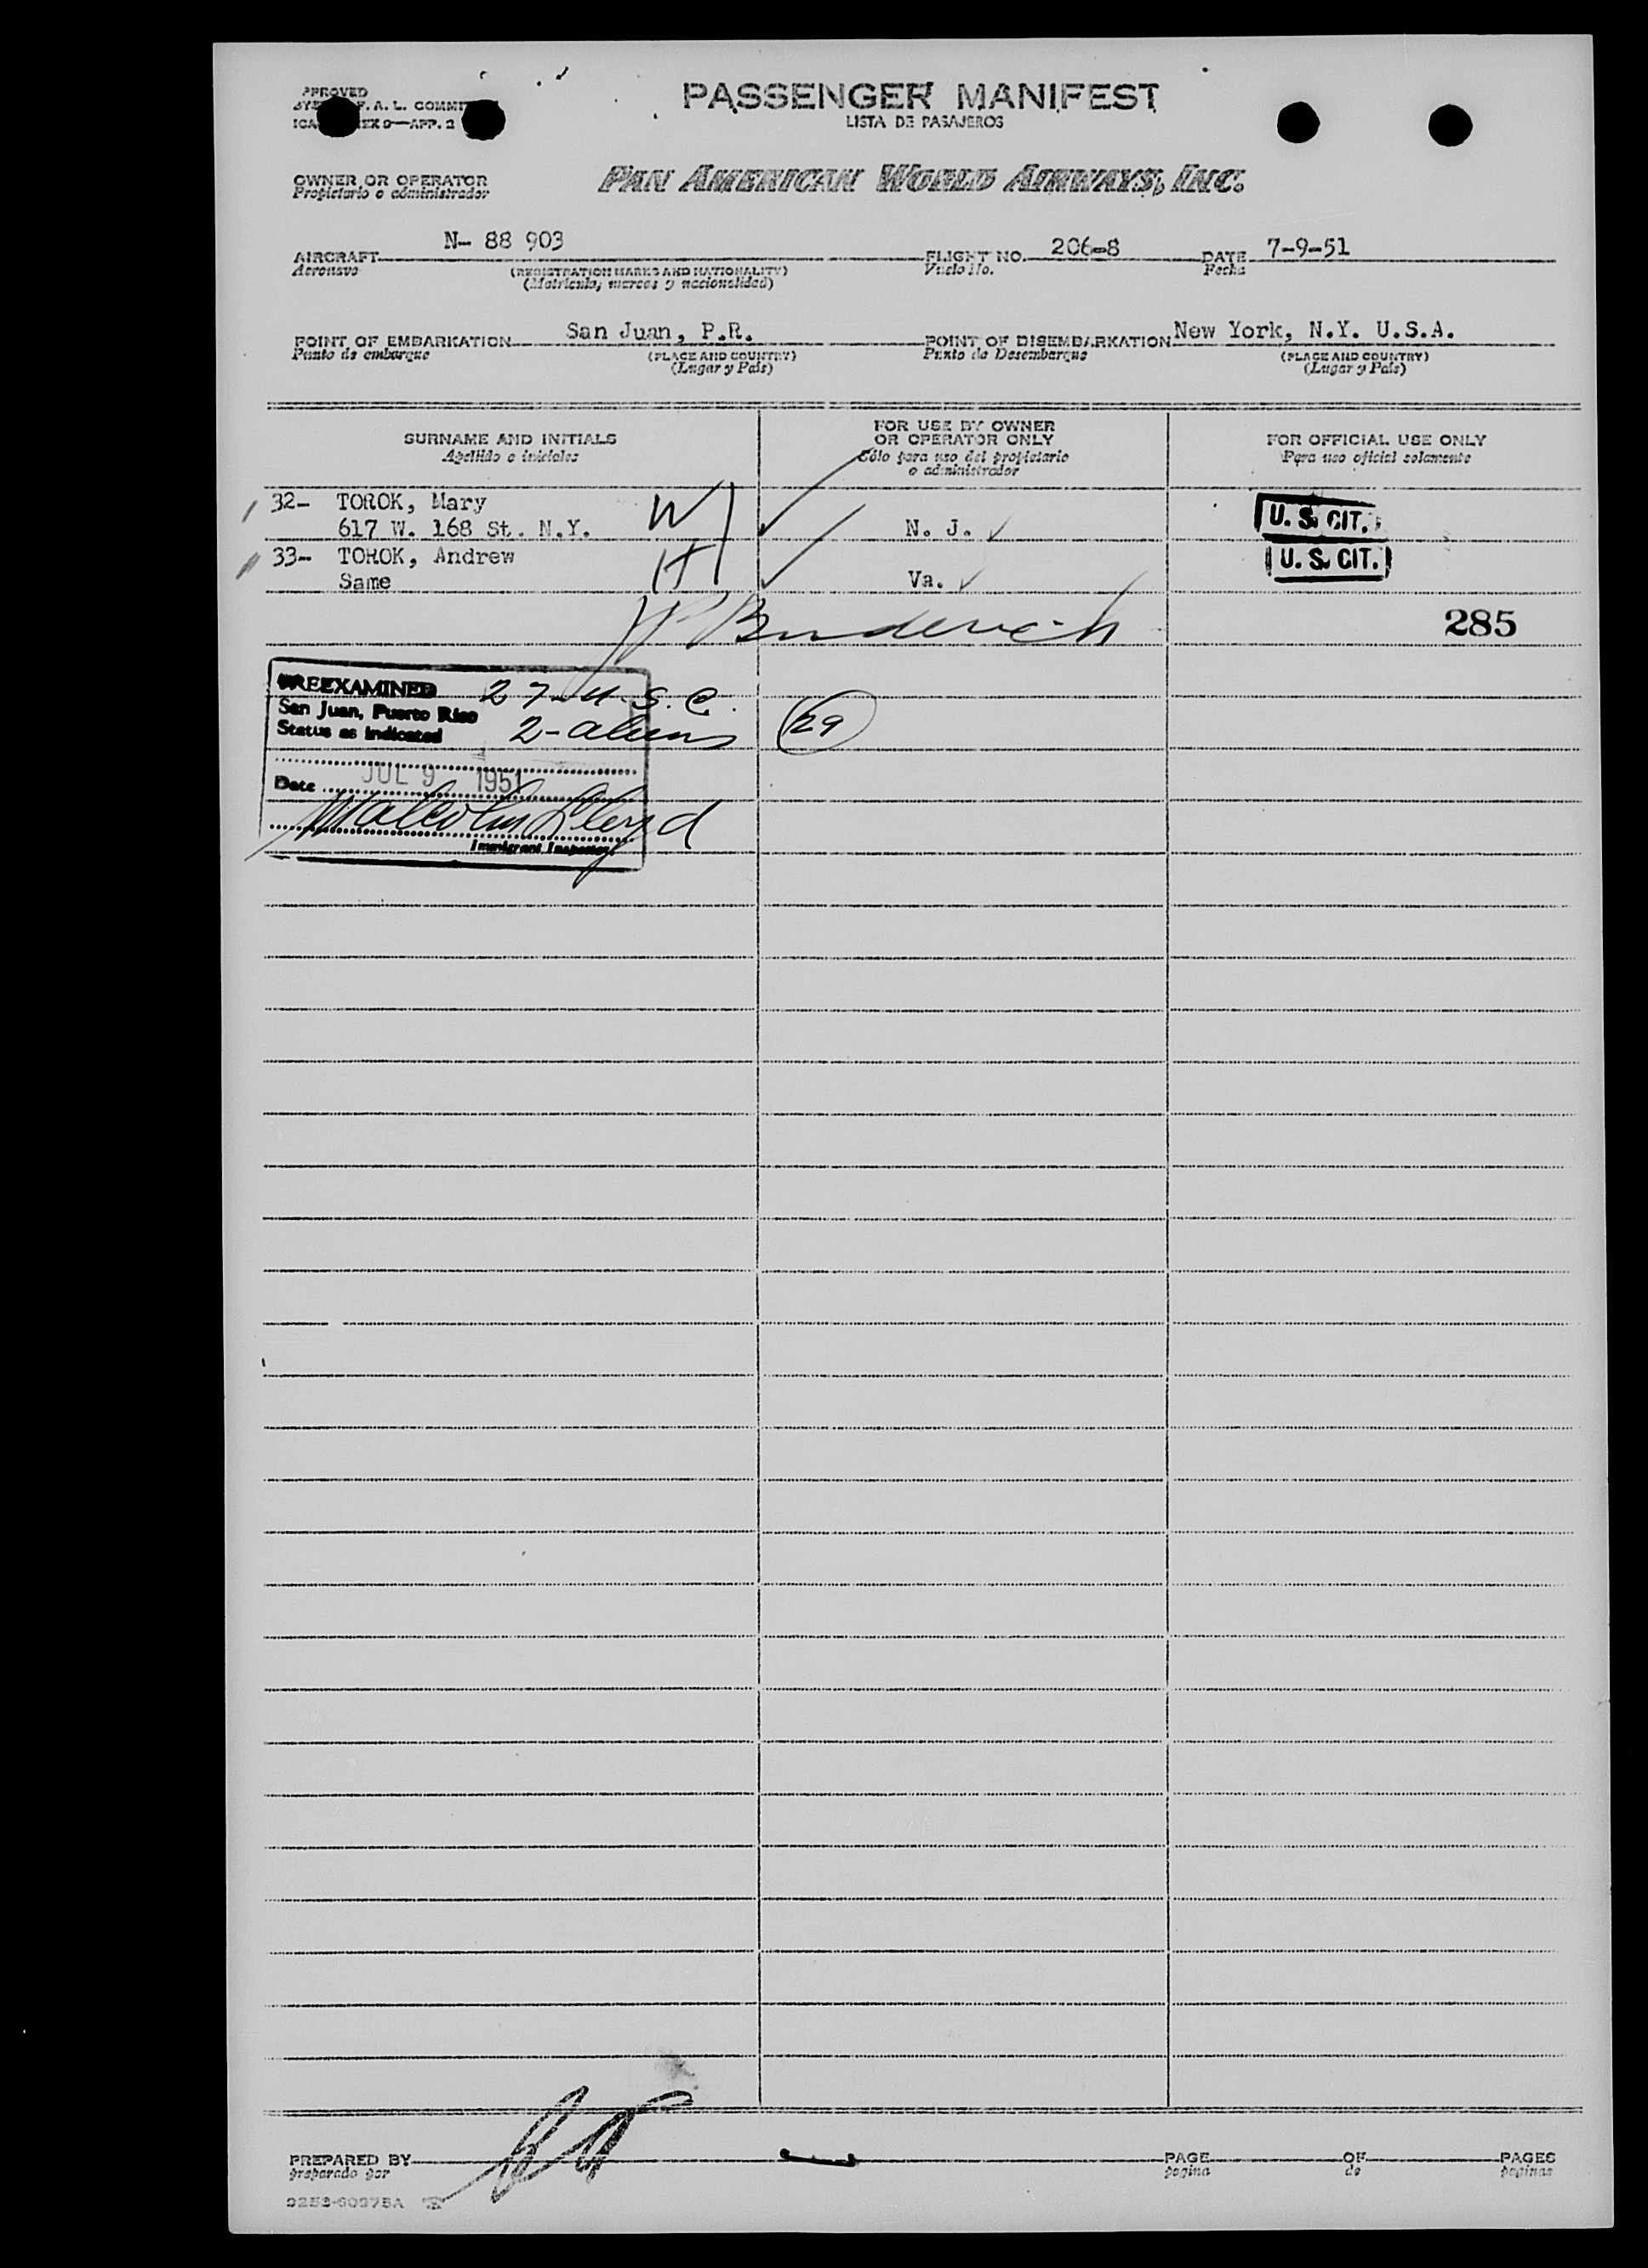 PASSENGER MANIFEST
LISTA DE PASAJEROS
OWNER OR OPERATOR
Propietario o administrador
PAN AMERICAN WORLD AIRWAYS, INC.
AIRCRAFT N- 88 903 FLIGHT NO. 206-8 DATE 7-9-51
Aeronave (REGISTRATION MARKS AND NATIONALITY) Vuelo No. Fecha
(Matricula, marcas y nacionalidad)
POINT OF EMBARKATION San Juan, P.R. POINT OF DISEMBARKATION New York, N.Y. U.S.A.
Punto de embarque (PLACE AND COUNTRY) Punto de Desembarque (PLACE AND COUNTRY)
(Lugar y País) (Lugar y País)
SURNAME AND INITIALS FOR USE BY OWNER OR OPERATOR ONLY FOR OFFICIAL USE ONLY
Apellido e iniciales Sólo para uso del propietario o administrador Para uso oficial solamente
32- TOROK, Mary W
617 W. 168 St. N.Y. N. J. U. S. CIT.
33- TOROK, Andrew H
Same Va. U. S. CIT.
285
PREEXAMINED 27-U.S.C.
San Juan, Puerto Rico
Status as Indicated 2-aliens 29
Date JUL 9 1951
Malcolm Lloyd
Immigrant Inspector
PREPARED BY PAGE OF PAGES
preparado por pagina de paginas